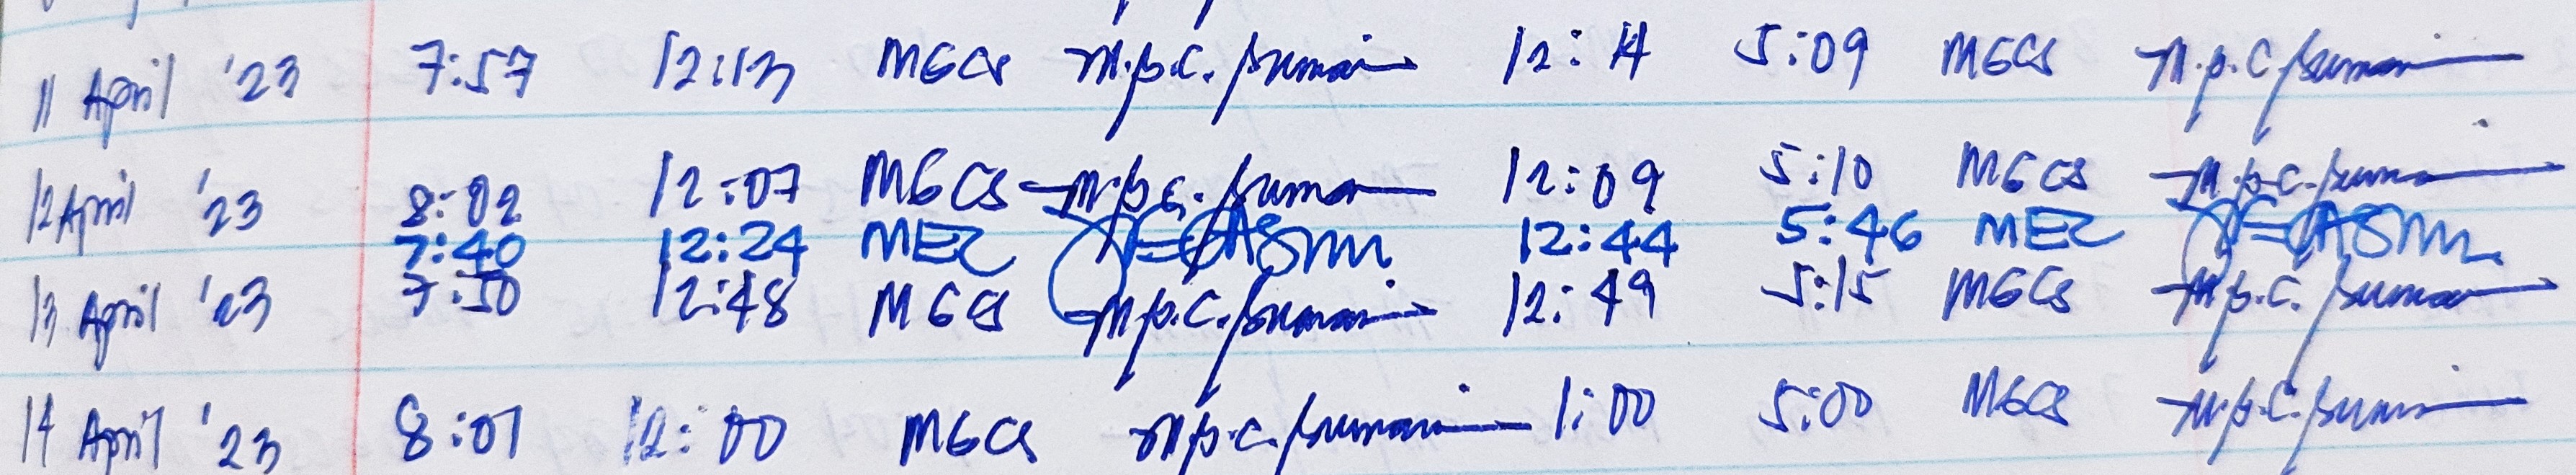 11 April '23 7:57 12:13 MGCS 12:14 5:09 MGCS
12 April '23 8:02 12:07 MGCS 12:09 5:10 MGCS
7:40 12:24 MEC 12:44 5:46 MEC
13 April '23 7:50 12:48 MGCS 12:49 5:15 MGCS
14 April '23 8:01 12:00 MGCS 1:00 5:00 MGCS